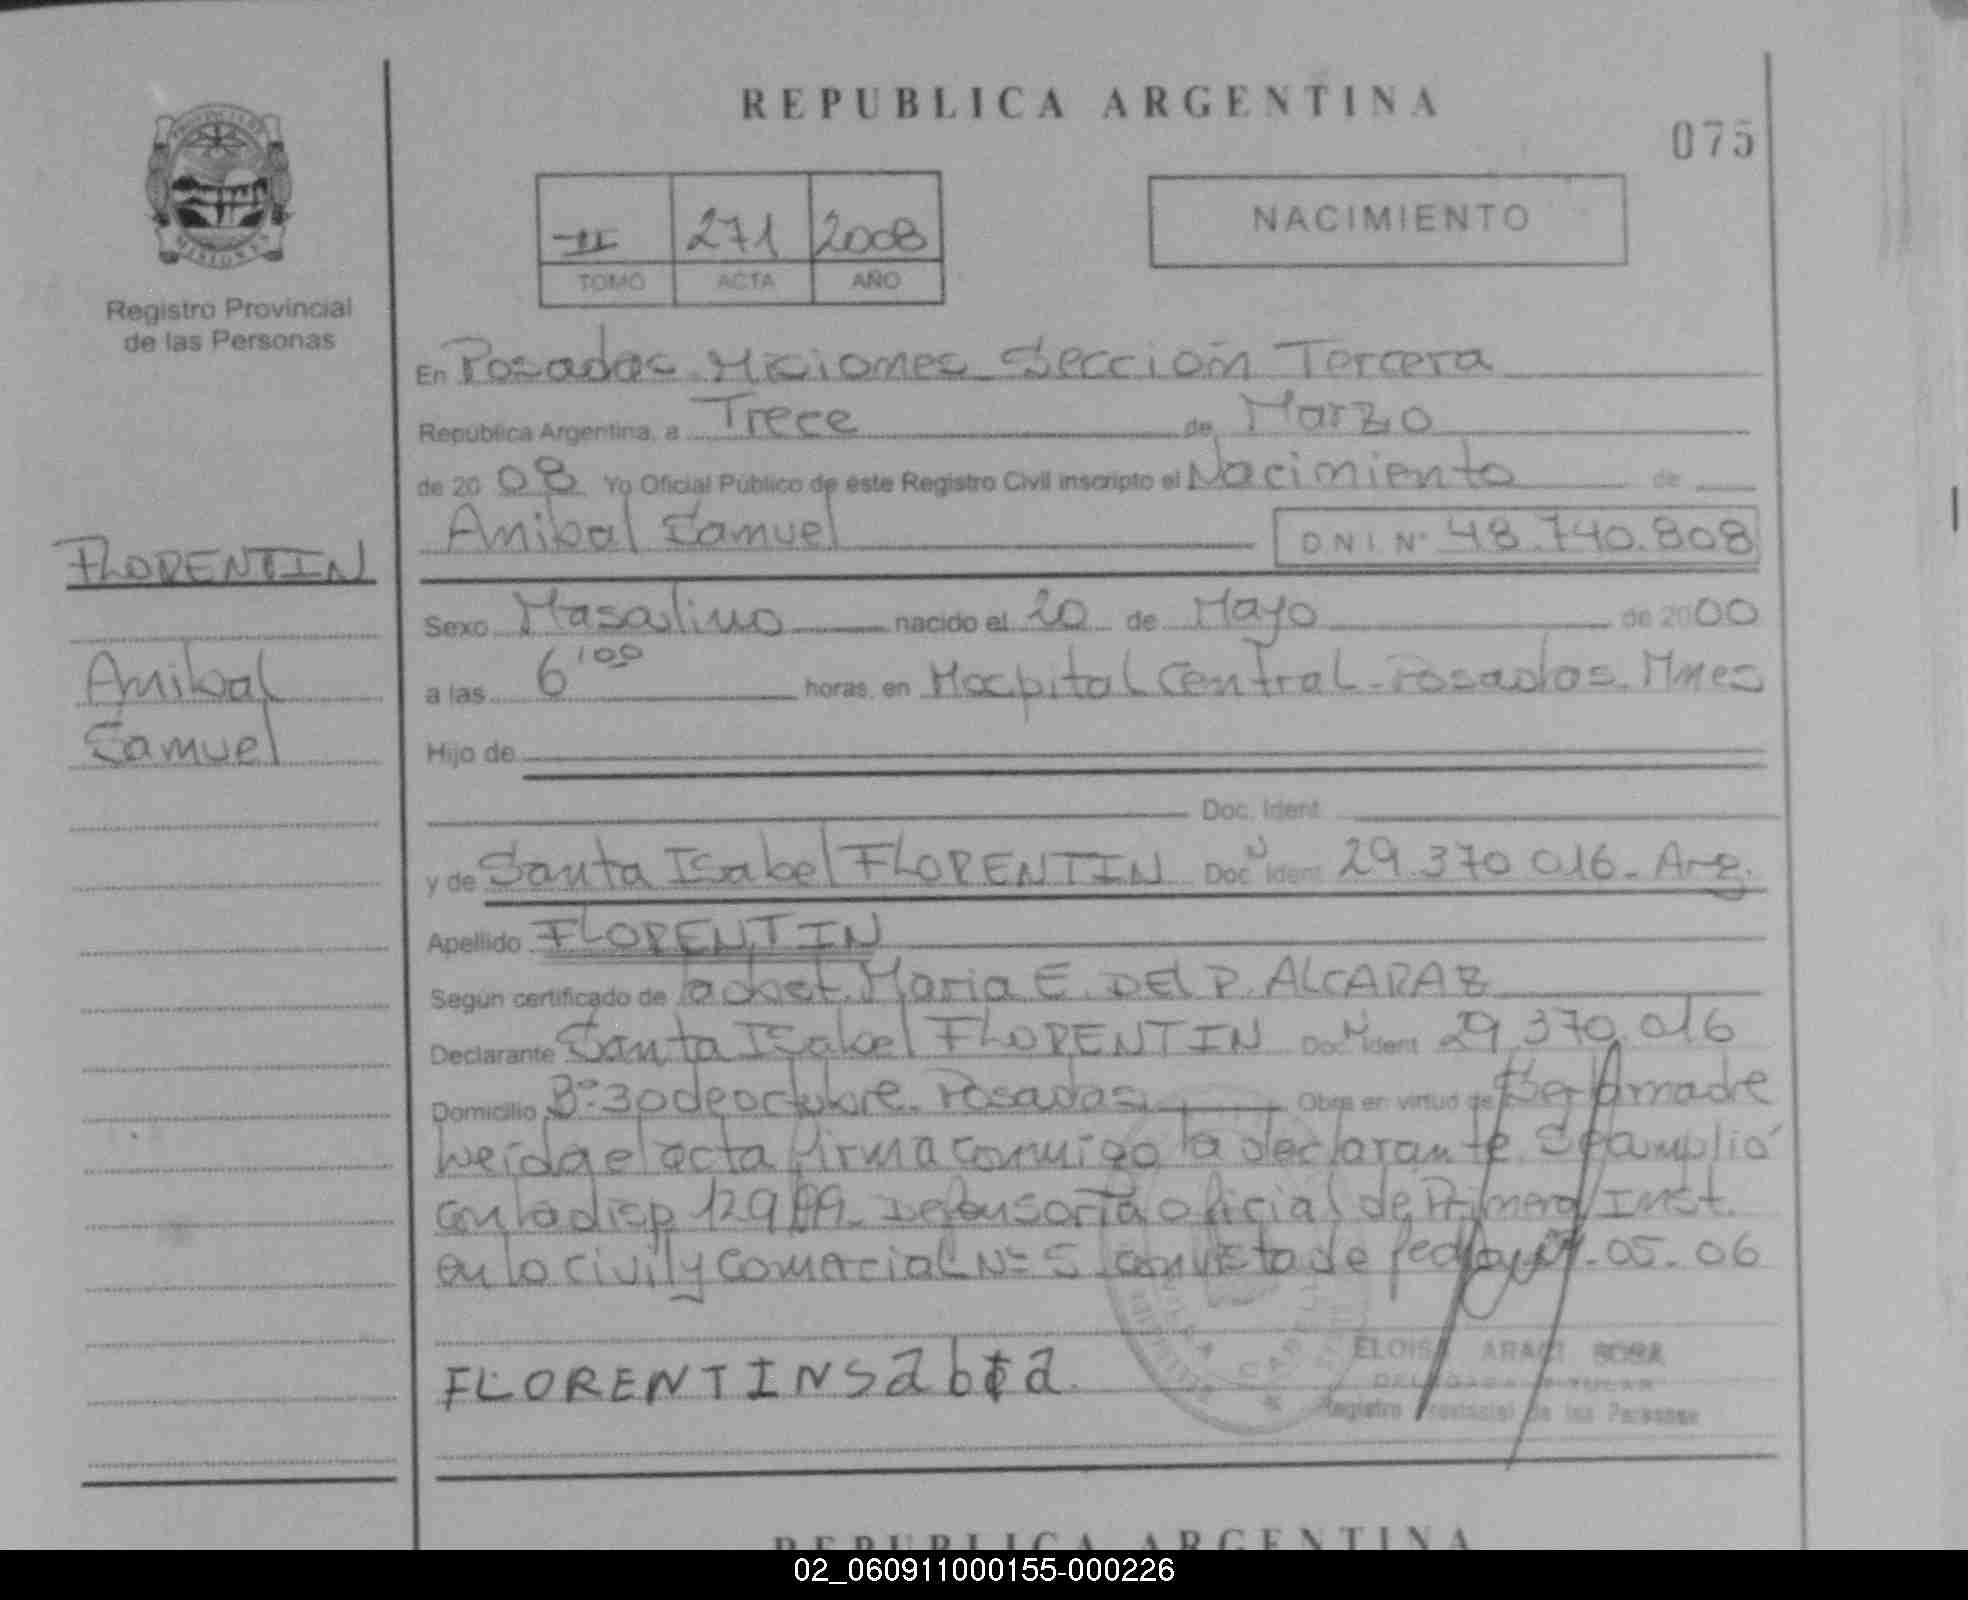 REPUBLICA ARGENTINA
075
II 271 2008
TOMO ACTA AÑO
NACIMIENTO
PROVINCIA DE
MISIONES
Registro Provincial
de las Personas
FLORENTIN
Anibal
Samuel
En Posadas Misiones Sección Tercera
República Argentina, a Trece de Marzo
de 2008 Yo Oficial Público de este Registro Civil inscripto el Nacimiento de
Anibal Samuel D N I. Nº 48.740.808
Sexo Masculino nacido el 20 de Mayo de 2000
a las 6'00 horas, en Hospital Central - Posadas. Mnes
Hijo de
Doc. Ident.
y de Santa Isabel FLORENTIN Doc N Ident 29.370.016 - Arg.
Apellido FLORENTIN
Según certificado de la obst. Maria E. DEL P. ALCARAZ
Declarante Santa Isabel FLORENTIN Doc N Ident 29 370.016
Domicilio Bº 30 de octubre. Posadas. Obra en virtud de Ser la madre
Leída el acta firma conmigo la declarante. Se amplió
con la disp 129/99. Defensoría oficial de Primera Inst.
en lo civil y comercial Nº 5 con vista de fecha .05.06
FLORENTIN Sabta.
ELOISA ARACI SOSA
DELEGADA TITULAR
Registro Provincial de las Personas
REPUBLICA ARGENTINA
02_060911000155-000226